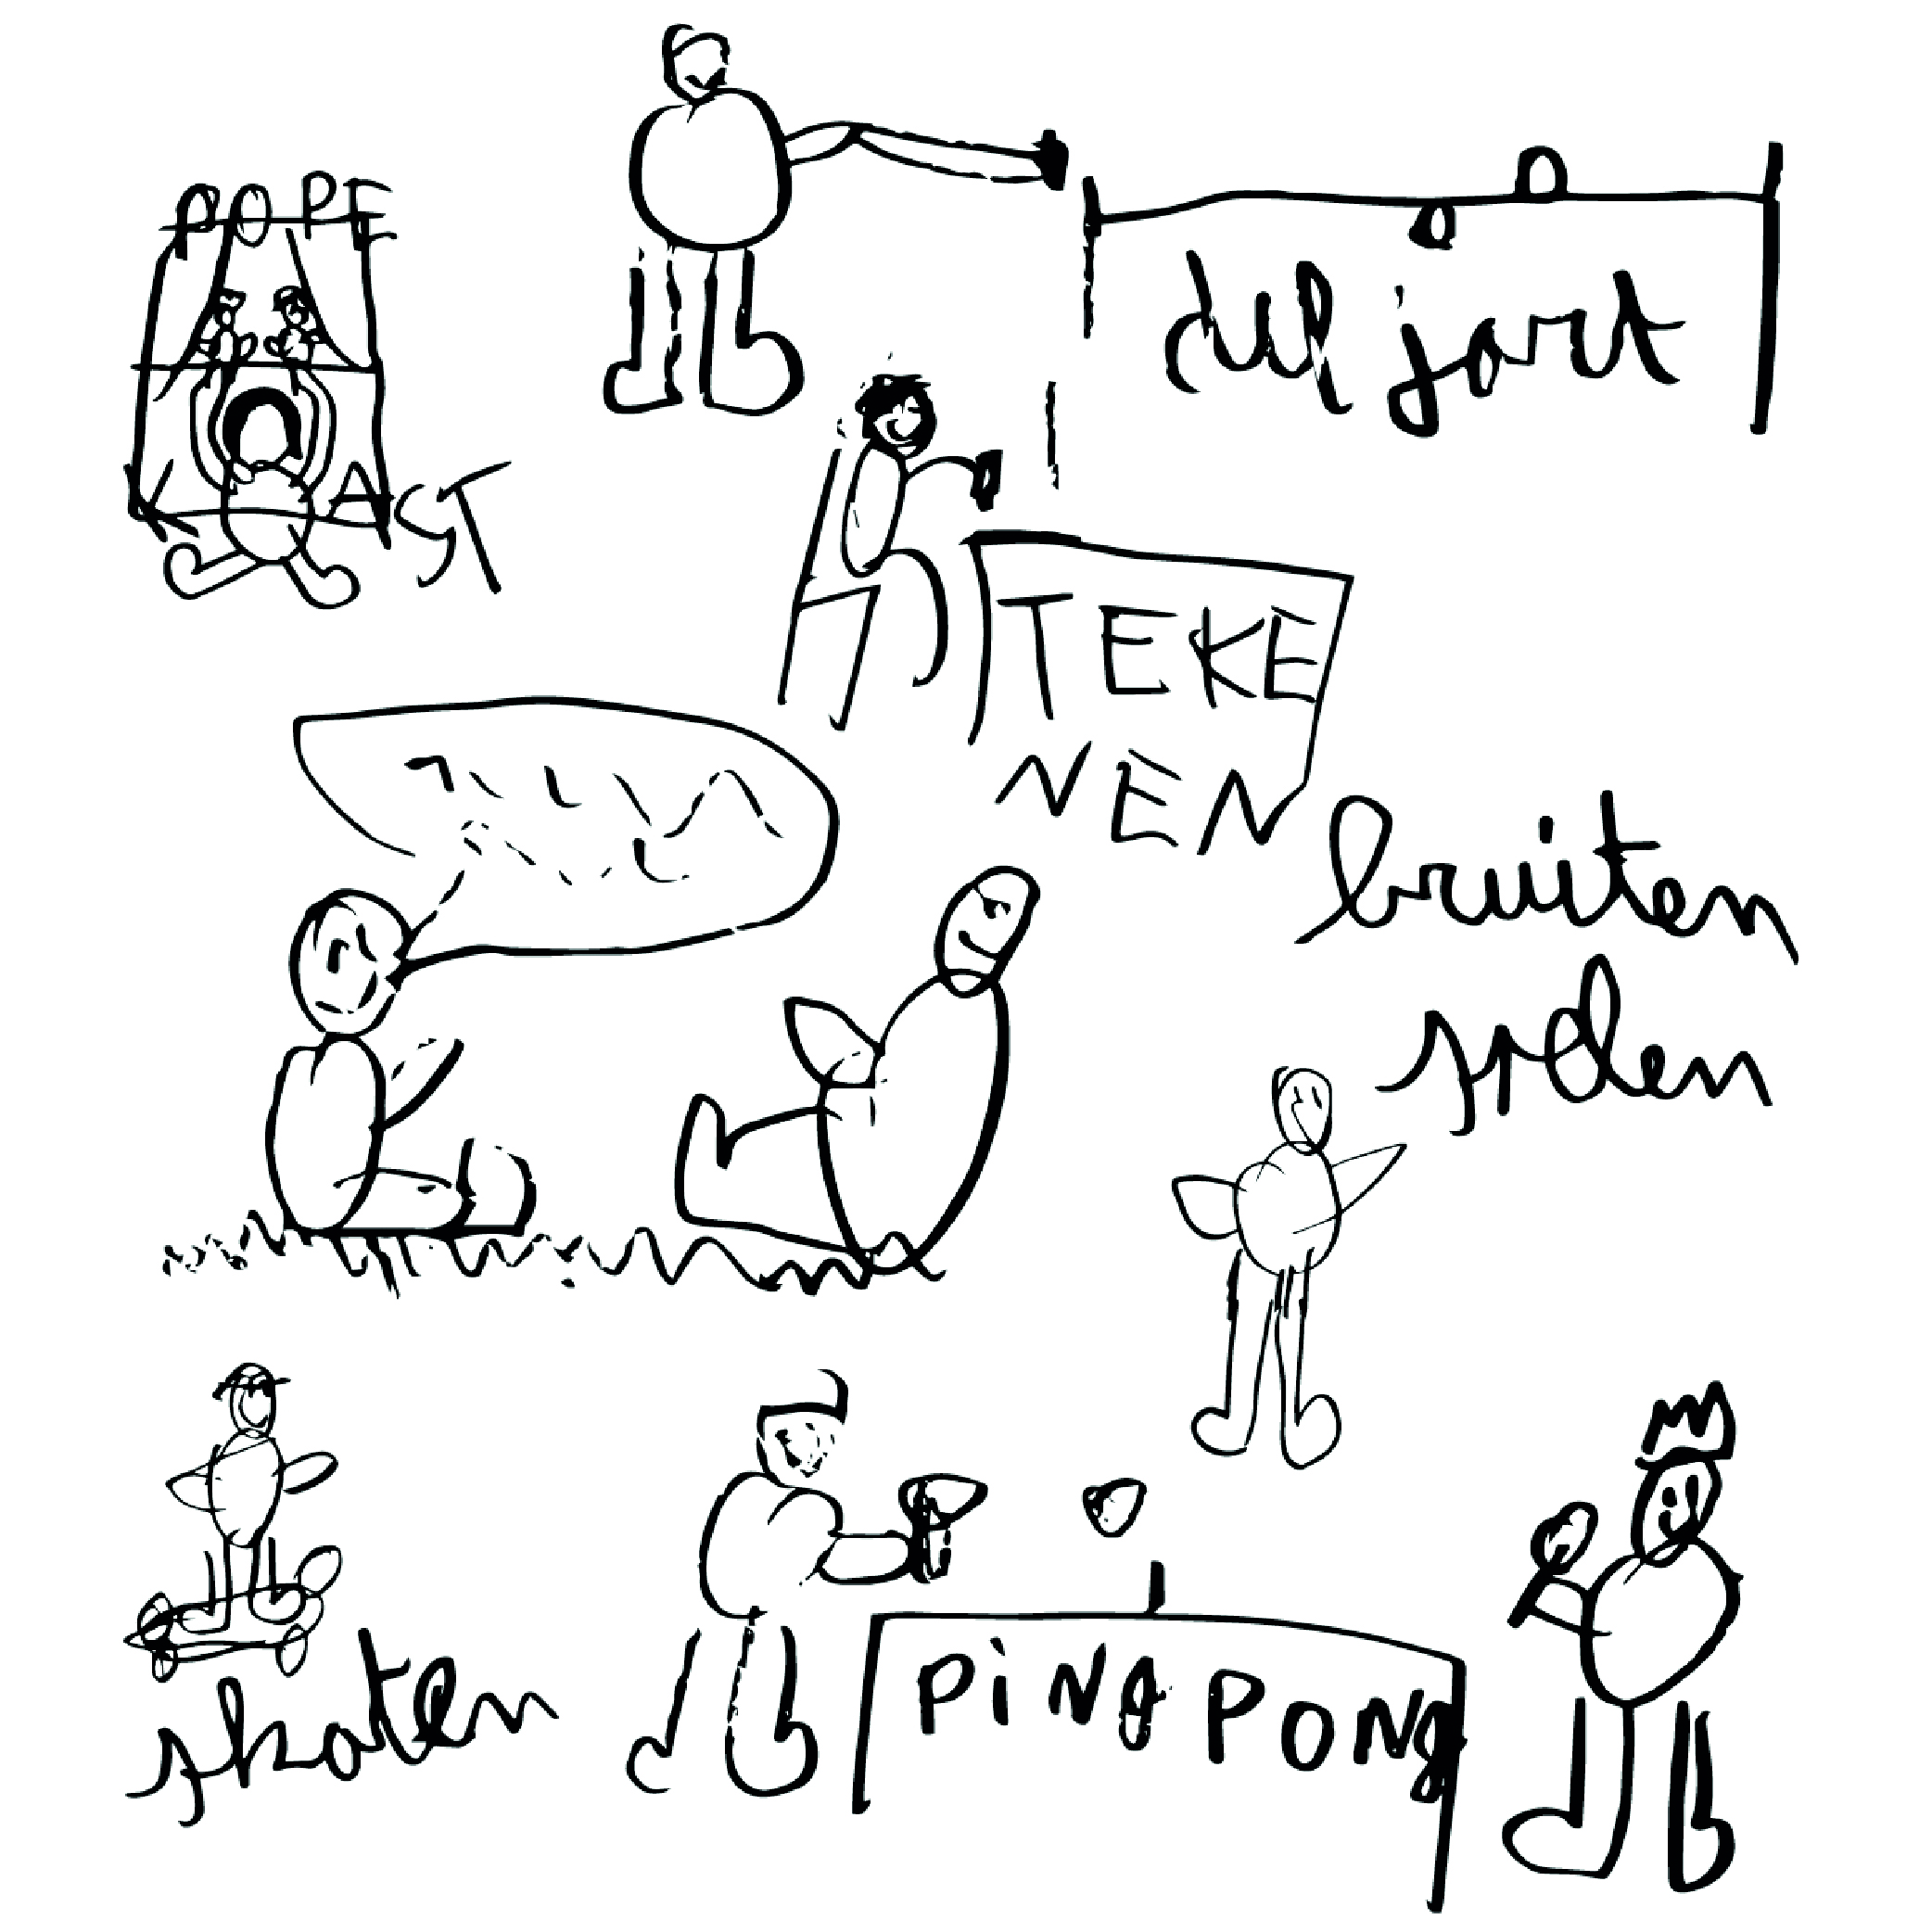 POPE
KAST
TEKE
NEN
bruiten
spelen
skaten
PiNG PONG